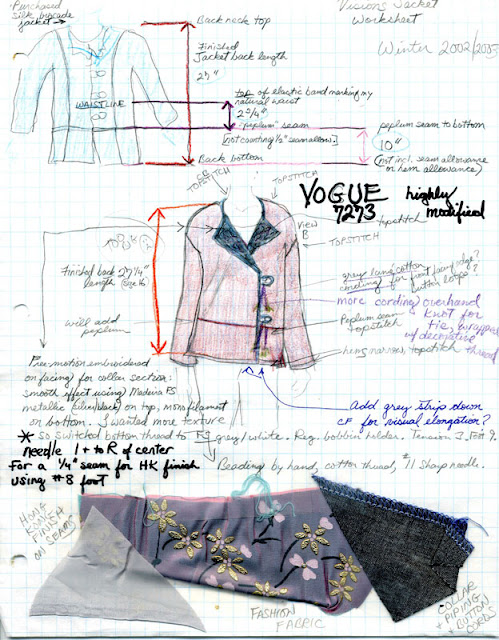 Purchased
silk brocade
jacket →
Back neck top
Visions Jacket
Worksheet
Winter 2002/2003
Finished
Jacket back length
WAISTLINE
top of elastic band marking my
natural waist
2 3/4"
"peplum" seam
[not counting 1/2" seam allow.]
peplum seam to bottom
10"
(not incl. seam allowance
or hem allowance)
Back bottom
CB
TOPSTITCH
TOPSTITCH
VOGUE
7273
highly
modified
VIEW
B
Topstitch
TOPSTITCH
Finished back 27 1/4"
length
will add
peplum
grey
cotton
cording for front facing edge?
button loops?
more cording/overhand
knot for
tie, wrapped
w/decorative
thread
Peplum seam
Topstitch
hem: narrow, topstitch
Free motion embroidered
on facing/for collar section:
smooth effect using Madeira FS
metallic (silver/black) on top, monofilament
on bottom. I wanted more texture
* so switched bottom thread to FS grey/white. Reg. bobbin holder. Tension 3, Foot 9.
Add grey strip down
CF for visual elongation?
Needle 1 + to R of center
For a 1/4" seam for HK finish
using #8 foot
Beading by hand, cotton thread, #11 sharp needle.
HONG
KONG
FINISH
ON SEAMS
FASHION
FABRIC
COLLAR
+ PIPING
+ BUTTON
CORDS